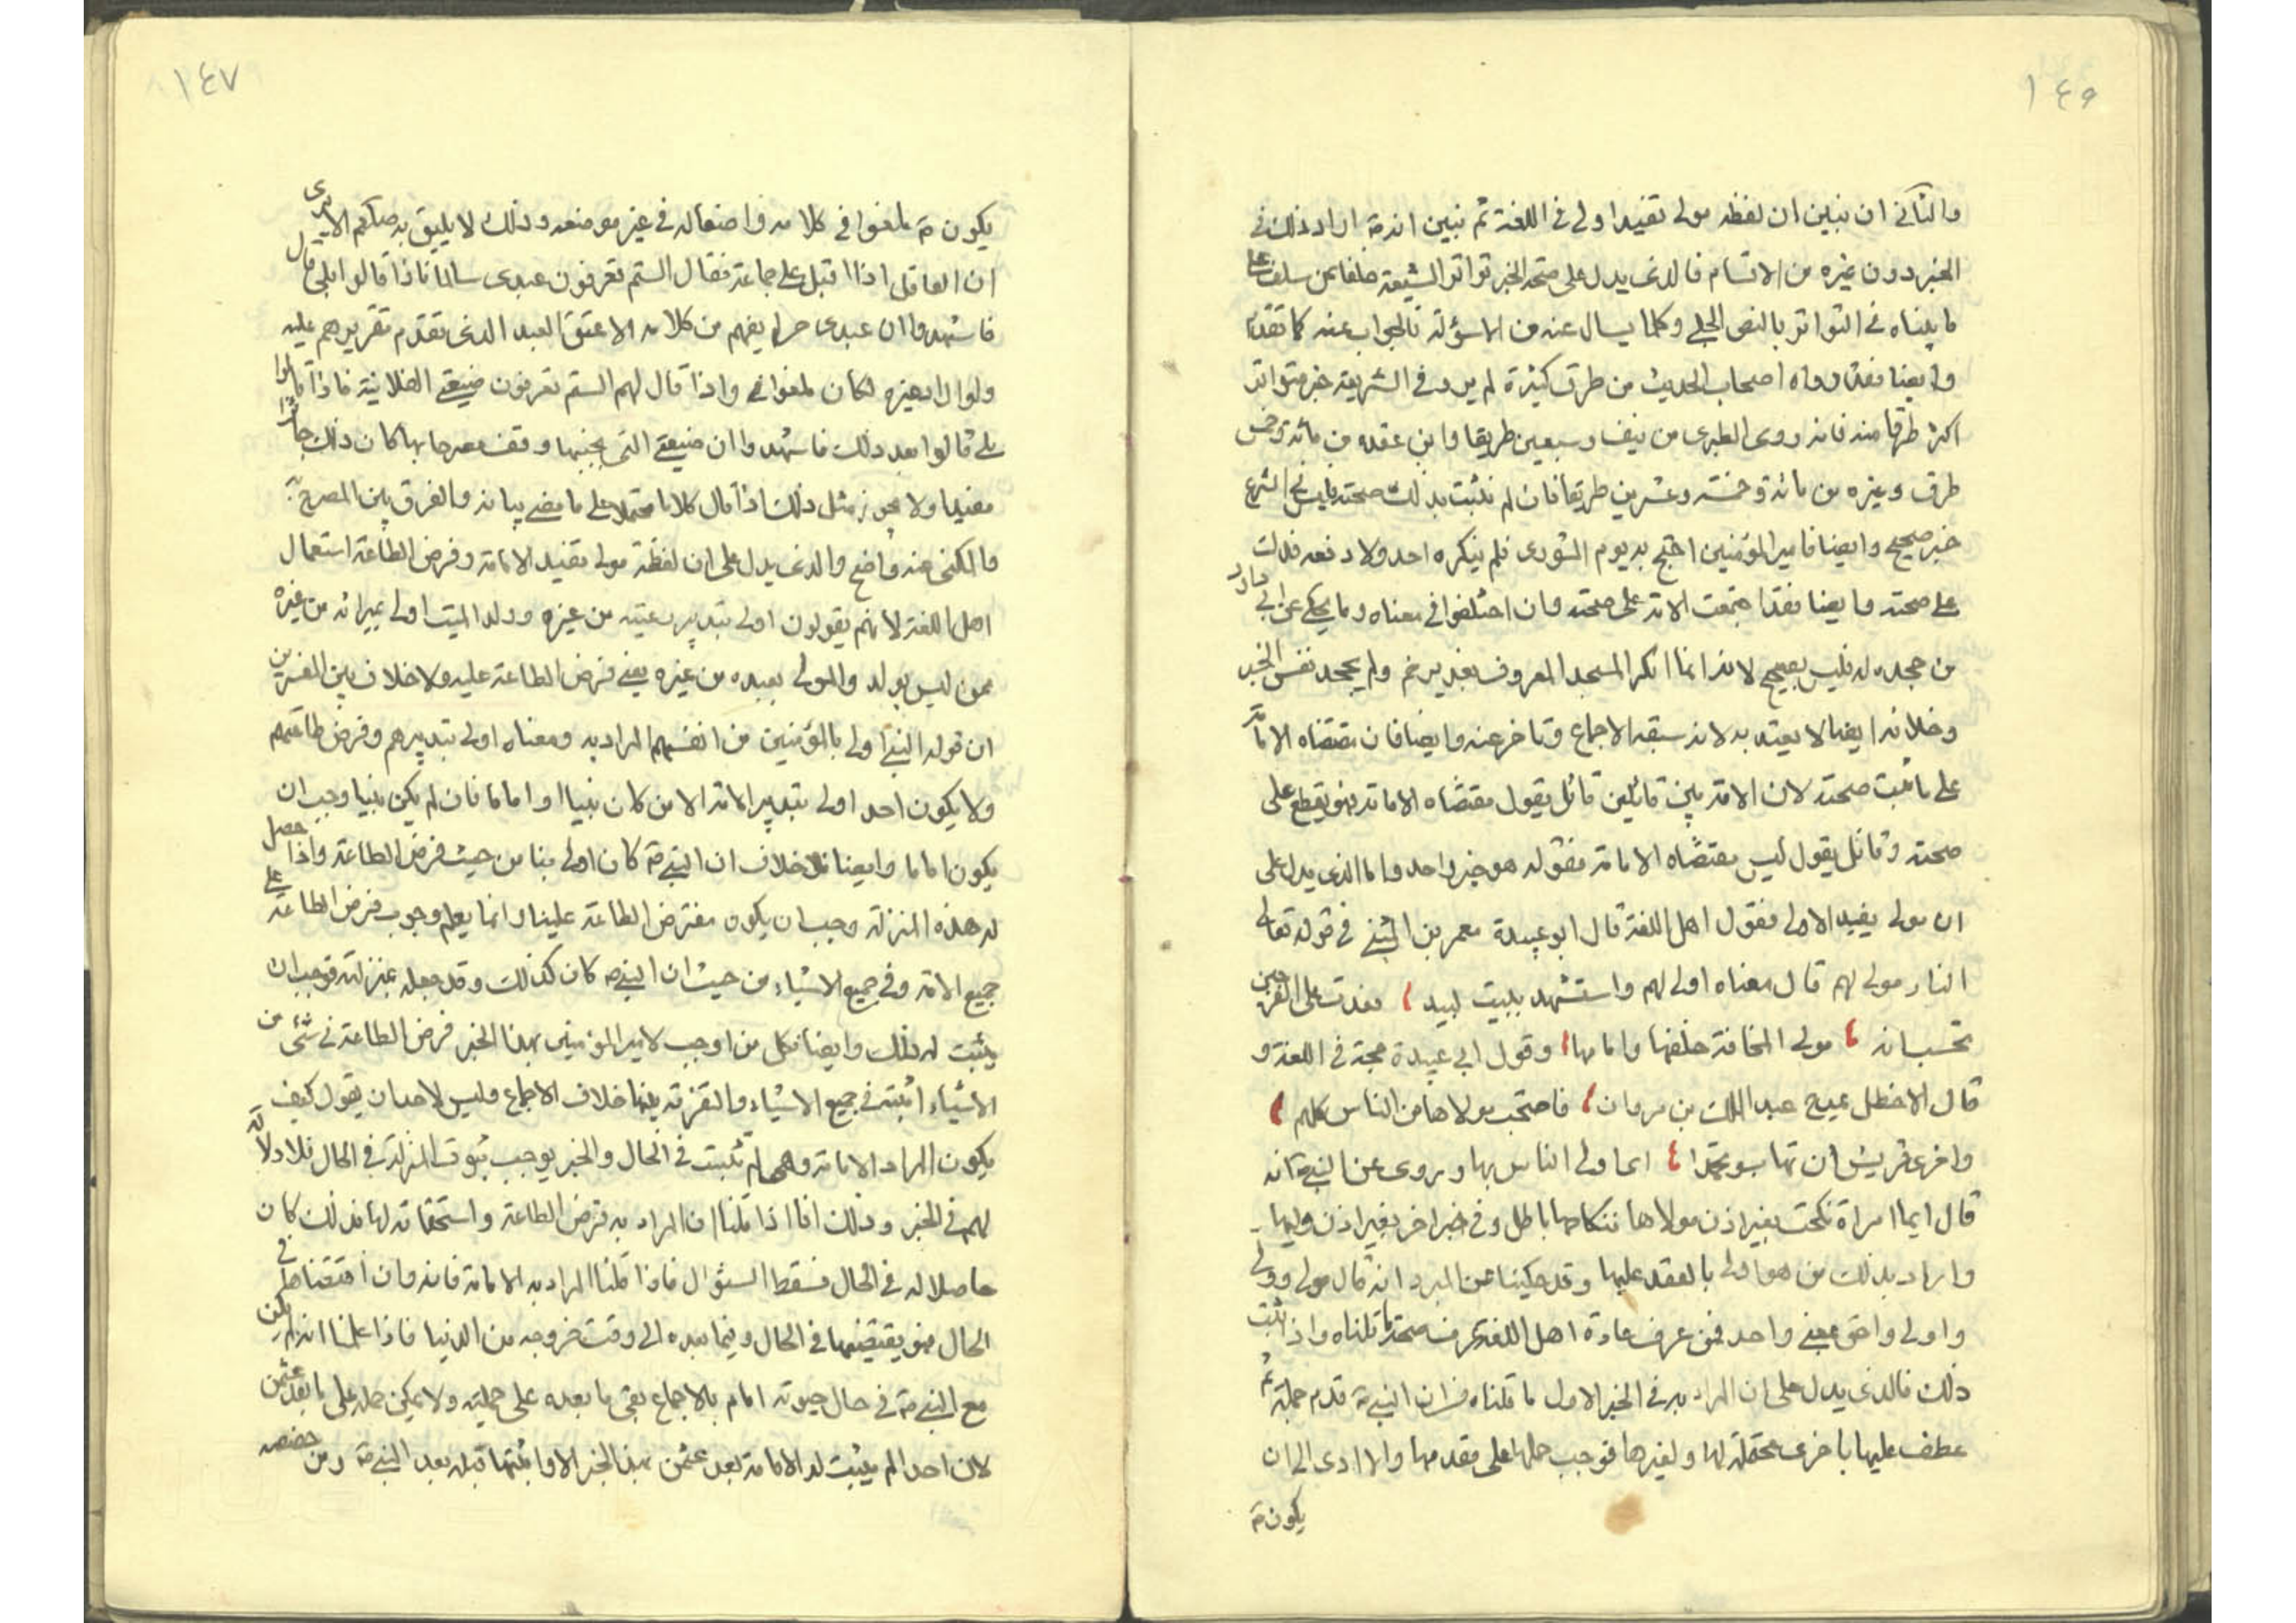 ١٤٥
والثاني ان نبين ان لفظه مولى تفيد اولى في اللغة ثم نبين انه ص اراد ذلك في
الخبر دون غيره من الاقسام فالذي يدل على صحة الخبر تواتر الشيعة خلفا عن سلف على
ما بيناه في التواتر بالنص الجلي وكلما يسال عنه من الاسؤلة فالجواب عنه كما تقدم
وايضا فقد رواه اصحاب الحديث من طرق كثيرة لم يرد في الشريعة خبر متواتر
اكثر طرقا منه فانه روى الطبرى من نيف وسبعين طريقا وابن عقده من مائة وخمس
طرق وغيره من مائة وخمسة وعشرين طريقا فان لم نثبت بذلك صحته فليس في الشرع
خبر صحيح وايضا فامير المؤمنين احتج به يوم الشورى فلم ينكره احد ولا دفعه فدلت
على صحته وايضا فقد اجتمعت الامة على صحته وان اختلفوا في معناه وما يحكى عن ابي داود
من جحده له فليس بصحيح لانه انما انكر المسجد المعروف بغدير خم ولم يجحد نفس الخبر
وخلافه ايضا لا يعتد به لانه سبقه الاجماع وتاخر عنه وايضا فان مقتضاه الامامة
على ما ثبت صحته لان الامة بين قائلين قائل يقول مقتضاه الامامة فهو يقطع على
صحته وقائل يقول ليس مقتضاه الامامة فقوله هو خبر واحد واما الذي يدل على
ان مولى يفيد الاولى فقول اهل اللغة قال ابو عبيدة معمر بن المثنى في قوله تعالى
النار مولى لهم قال معناه اولى لهم واستشهد ببيت لبيد فغدت على الفرجين
تحسب انه مولى المخافة خلفها وامامها وقول ابي عبيدة حجة في اللغة و
قال الاخطل يمدح عبد الملك بن مروان فاصحب مولاها من الناس كلهم
واخرى قريش ان تهاب وتحمدا اى اولى الناس بها وروى عن النبي ص انه
قال ايما امراة نكحت بغير اذن مولاها فنكاحها باطل وفي خبر اخر بغير اذن وليها
واراد بذلك من هو اولى بالعقد عليها وقد حكينا عن المبرد انه قال مولى وولى
واولى واحق بمعنى واحد فمن عرف عادة اهل اللغة عرف صحة ما قلناه واذا ثبت
ذلك فالذى يدل على ان المراد به في الخبر الاول ما قلناه من ان النبي ص قدم جملة ثم
عطف عليها باخرى محتملة لها ولغيرها فوجب حملها على مقدمها والا ادى الى ان
يكون ص
١٤٧
يكون ص ملغزا في كلامه واضعا له في غير موضعه وذلك لا يليق به صلعم الا ترى
ان العاقل اذا اقبل على جماعة فقال الستم تعرفون عبدى سالما فاذا قالوا بلى قال
فاشهدوا ان عبدى حر لم يفهم من كلامه الا عتق العبد الذى تقدم تقريرهم عليه
ولو اراد غيره لكان ملغزا في واذا قال لهم الستم تعرفون ضيعتى الفلانية فاذا قالوا
بلى قالوا بعد ذلك فاشهدوا ان ضيعتى التى بجنبها وقف مصرحا بها كان ذلك جائزا
مفيدا ولا يجوز مثل ذلك اذا قال كلاما محتملا على ما مضى بيانه والفرق بين المصرح به
والمكنى عنه واضح والذى يدل على ان لفظة مولى تفيد الامامة وفرض الطاعة استعمال
اهل اللغة لانهم يقولون اولى بتدبير رعيته من غيره وولد الميت اولى بميراثه من غيره
ممن ليس بولد والمولى بعبده من غيره يعنى فرض الطاعة عليه ولا خلاف بين المفسرين
ان قوله النبي اولى بالمؤمنين من انفسهم المراد به ومعناه اولى بتدبيرهم وفرض طاعتهم
ولا يكون احد اولى بتدبير الامة الا من كان نبيا او اماما فان لم يكن نبيا وجب ان
يكون اماما وايضا فلا خلاف ان النبي ص كان اولى بنا من حيث فرض الطاعة واذا حصل
له هذه المنزلة وجب ان يكون مفترض الطاعة علينا وانما يعلم وجوب فرض الطاعة على
جميع الامة وفي جميع الاشياء من حيث ان النبي ص كان كذلك وقد جعله بمنزلته فوجب ان
يثبت له ذلك وايضا فكل من اوجب لامير المؤمنين بهذا الخبر فرض الطاعة في شئ من
الاشياء اثبته في جميع الاشياء والتفرقة بينها خلاف الاجماع وليس لاحد ان يقول كيف
يكون المراد الامامة وهي لم تثبت في الحال والخبر يوجب ثبوت المنزلة في الحال فلا دلالة
لهم في الخبر وذلك انا اذا قلنا ان المراد به فرض الطاعة واستحقاقه لها فذلك كان
حاصلا له في الحال فسقط السؤال فاذا قلنا المراد به الامامة فانه وان اقتضاها في
الحال فهو يقتضيها في الحال وفيما بعده الى وقت خروجه من الدنيا فاذا علمنا انه لم يكن
مع النبي ص في حال حيوته امام بالاجماع بقى ما بعده على جملته ولا يمكن حمله على ما بعد عثمن
لان احدا لم يثبت له الامامة بعد عثمن بهذا الخبر الا واثبتها قبله بعد النبي ص ومن خصصه